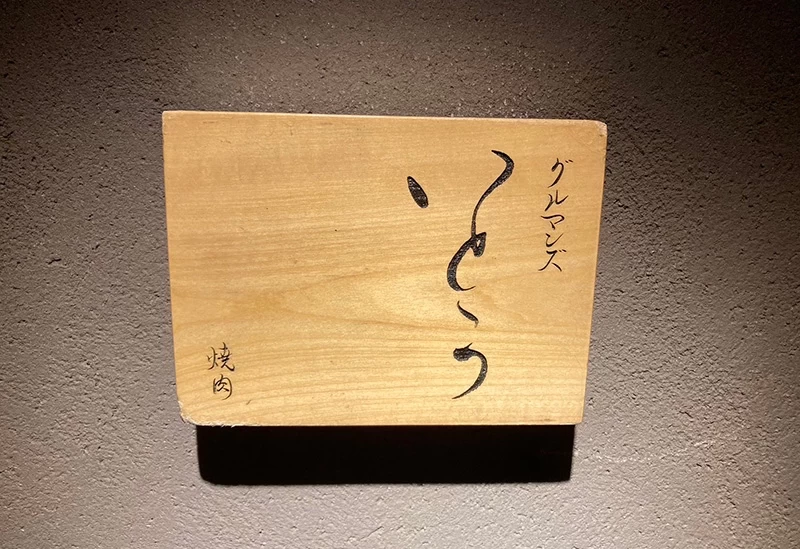 グルマンズ
いとう
焼肉